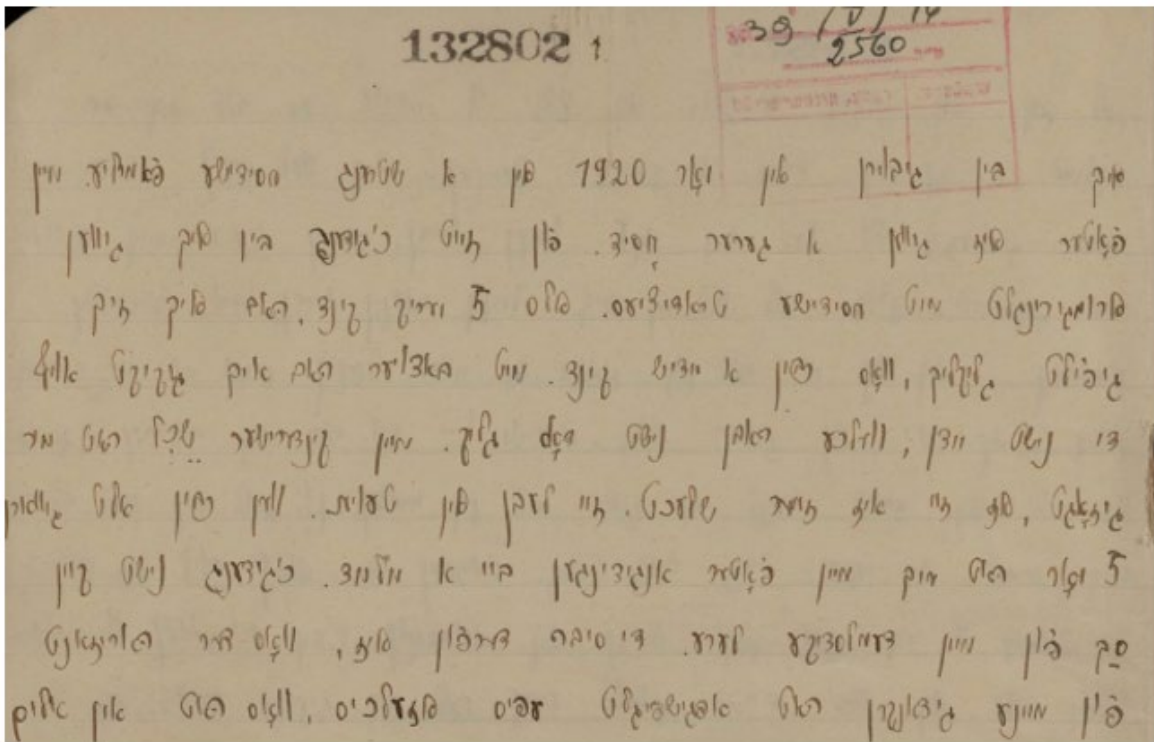 132802 1
39 (V) 14
2560
איך בין גיבוירן אין יאָר 1920 אין א שטרענג חסידישע פאַמיליע. מיין
פאָטער איז געווען א גערער חָסיד. פון זייט כ'גידענק בין איך געווען
ארומגירינגלט מיט חסידישע טראדיציעס. אלס 5 יעריק קינד, האב איך זיך
גיפילט גליקליך, וואָס כ'בין א יידיש קינד. מיט באדויער האב איך געקוקט אויף
די נישט יודן, וועלכע האבן נישט דאָס גליק. מיין קינדערישער שֵׂכֶל האט מר
גיזאָגט, אז זיי איז זייער שלעכט. זיי לעבן אין טעות. ווען כ'בין אלט געווארן
5 יאָר האט מיך מיין פאָטער אנגידינגען ביי א מלמד. כ'גידענק נישט קיין
סַך פון מיין דעמלסדיקע לערע. די סיבה דערפון איז, וואָס דער האריזאנט
פון מיינע גידאנקען האט אפגישפיגלט עפיס אזעלכיס, וואָס האט אין אלים